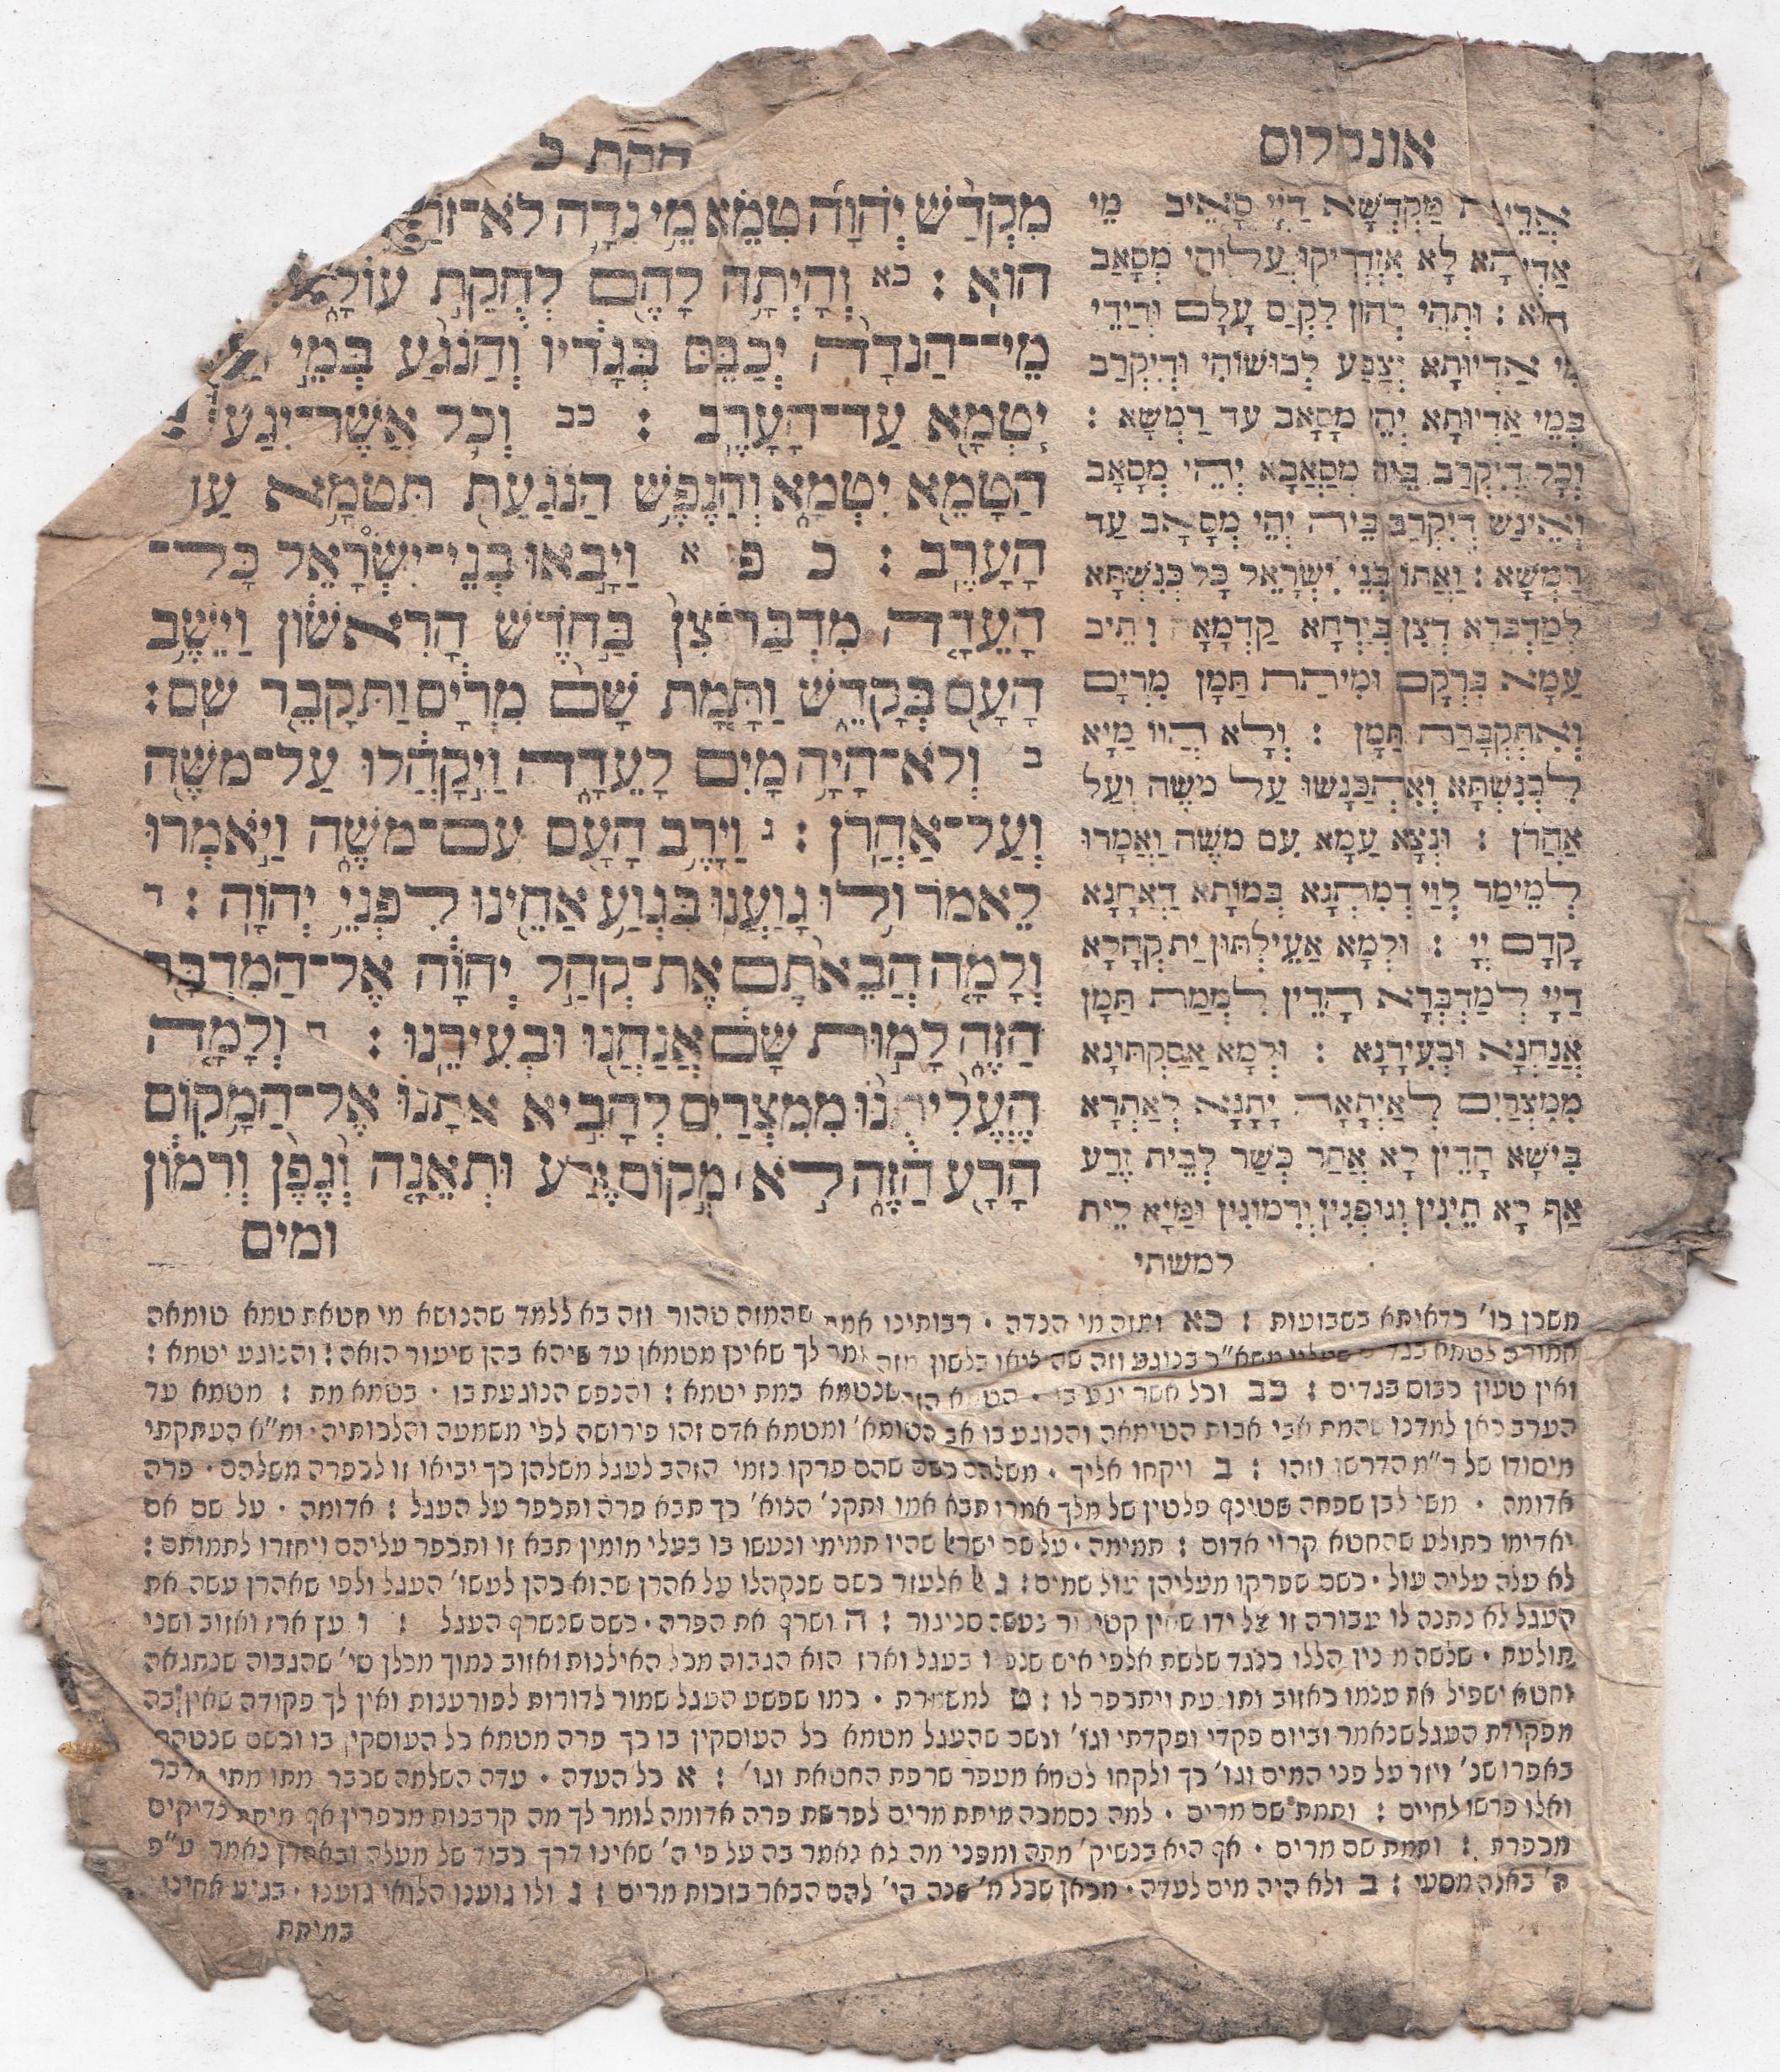 אונקלוס
חקת כ
אֲרֵי יָת מַקְדְּשָׁא דַיְיָ סָאֵיב מֵי
אַדְיוּתָא לָא אִזְדְּרִיקוּ עֲלוֹהִי מְסָאַב
הוּא : וּתְהִי לְהוֹן לִקְיַם עָלָם וּדְיַדֵי
מֵי אַדְיוּתָא יְצַבַּע לְבוּשׁוֹהִי וּדְיִקְרַב
בְּמֵי אַדִיוּתָא יְהֵי מְסָאָב עד רַמְשָׁא :
וְכָל דְיִקְרַב בֵּיהּ מְסַאֲבָא יְהֵי מְסָאָב
וֶאֱינַשׁ דְיִקְרַב בֵּיהּ יְהֵי מְסָאָב עַד
רַמְשָׁא : וַאֲתוֹ בְּנֵי יִשְׂרָאֵל כָּל כְּנִשְׁתָּא
לְמַדְבְּרָא דְצִן בְּיַרְחָא קַדְמָאָה וִתֵיב
עַמָא בִּרְקָם וּמִיתַת תַּמָן מִרְיָם
וְאִתְקְבָרַת תַּמָן : וְלָא הֲווֹ מַיָא
לִכְנִשְׁתָּא וְאִתְכַּנָשׁוּ עַל משֶׁה וְעַל
אַהֲרֹן : וּנְצָא עַמָא עִם משֶׁה וַאֲמָרוּ
לְמֵימַר לְוַי דְמִתְנָא בְּמוֹתָא דַאֲחָנָא
קֳדָם יְיָ : וּלְמָא אַעֵילְתּוּן יַת קְהָלָא
דַיְיָ לְמַדְבְּרָא הָדֵין לִמְמַת תַּמָן
אֲנַחְנָא וּבְעִירָנָא : וּלְמָא אַסֵּקְתּוּנָא
מִמִצְרַיִם לְאַיְתָאָה יָתָנָא לְאַתְרָא
בִּישָׁא הָדֵין לָא אֲתַר כְּשַׁר לְבֵית זְרַע
אַף לָא תֵינִין וְגוּפְנִין וְרִמוֹנִין וּמַיָא לֵית
למשתי
מִקְדַּ֨שׁ יְהֹוָ֜ה טִמֵּ֗א מֵ֥י נִדָּ֛ה לֹא־זוֹרַ֥ק
ה֑וּא : כא וְהָיְתָ֥ה לָהֶ֖ם לְחֻקַּ֣ת עוֹלָ֑ם
מֵי־הַנִּדָּה֙ יְכַבֵּ֣ס בְּגָדָ֔יו וְהַנֹּגֵ֙עַ֙ בְּמֵ֣י
יִטְמָ֖א עַד־הָעָֽרֶב : כב וְכֹ֛ל אֲשֶׁר־יִגַּע־
הַטָּמֵ֖א יִטְמָ֑א וְהַנֶּ֥פֶשׁ הַנֹּגַ֖עַת תִּטְמָ֥א עַד
הָעָֽרֶב : כ פ א וַיָּבֹ֣אוּ בְנֵֽי־יִ֠שְׂרָאֵל כָּל־
הָ֨עֵדָ֤ה מִדְבַּר־צִן֙ בַּחֹ֣דֶשׁ הָֽרִאשׁ֔וֹן וַיֵּ֥שֶׁב
הָעָ֖ם בְּקָדֵ֑שׁ וַתָּ֤מָת שָׁם֙ מִרְיָ֔ם וַתִּקָּבֵ֖ר שָֽׁם :
ב וְלֹא־הָ֥יָה מַ֖יִם לָעֵדָ֑ה וַיִּקָּ֣הֲל֔וּ עַל־משֶׁ֖ה
וְעַֽל־אַהֲרֹֽן : ג וַיָּ֥רֶב הָעָ֖ם עִם־משֶׁ֑ה וַיֹּאמְר֣וּ
לֵאמֹ֔ר וְל֥וּ גָוַ֛עְנוּ בִּגְוַ֥ע אַחֵ֖ינוּ לִפְנֵ֥י יְהֹוָֽה : ד
וְלָמָ֤ה הֲבֵאתֶם֙ אֶת־קְהַ֣ל יְהֹוָ֔ה אֶל־הַמִּדְבָּ֖ר
הַזֶּ֑ה לָמ֣וּת שָׁ֔ם אֲנַ֖חְנוּ וּבְעִירֵֽנוּ : ה וְלָמָ֤ה
הֶֽעֱלִיתֻ֙נוּ֙ מִמִּצְרַ֔יִם לְהָבִ֣יא אֹתָ֔נוּ אֶל־הַמָּק֥וֹם
הָרָ֖ע הַזֶּ֑ה לֹ֣א ׀ מְק֣וֹם זֶ֗רַע וּתְאֵנָ֤ה וְגֶ֙פֶן֙ וְרִמּ֔וֹן
ומים
משכן כו׳ כדאיתא בשבועות : כא ומזה מי הנדה · רבותינו אמרו שהמזה טהור וזה בא ללמד שהנושא מי חטאת טמא טומאה
חמורה לטמא בגדים שעליו משא״כ בנוגע וזה שהוציאו בלשון מזה לומר לך שאינן מטמאין עד שיהא בהן שיעור הזאה : והנוגע יטמא :
ואין טעון כבוס בגדים : כב וכל אשר יגע בו · הטמא הזה שנטמא במת יטמא : והנפש הנוגעת בו · בטמא מת : תטמא עד
הערב כאן למדנו שהמת אבי אבות הטומאה והנוגע בו אב הטומא׳ ומטמא אדם זהו פירושה לפי משמעה והלכותיה · ומ״א העתקתי
מיסודו של ר״מ הדרשן וזהו : ב ויקחו אליך · משלהם כשם שהם פרקו נזמי הזהב לעגל משלהן כך יביאו זו לכפרה משלהם · פרה
אדומה · משל לבן שפחה שטינף פלטין של מלך אמרו תבא אמו ותקנ׳ הצוא׳ כך תבא פרה ותכפר על העגל : אדומה · על שם אם
יאדימו כתולע שהחטא קרוי אדום : תמימה · על שם ישראל שהיו תמימי׳ ונעשו בו בעלי מומין תבא זו ותכפר עליהם ויחזרו לתמותם :
לא עלה עליה עול · כשם שפרקו מעליהן עול שמים : ג אל אלעזר כשם שנקהלו על אהרן שהוא כהן לעשו׳ העגל ולפי שאהרן עשה את
העגל לא נתנה לו עבודה זו על ידו שאין קטיגור נעשה סניגור : ה ושרף את הפרה · כשם שנשרף העגל : ו עץ ארז ואזוב ושני
תולעת · שלשה מינין הללו כנגד שלשת אלפי איש שנפלו בעגל וארז הוא הגבוה מכל האילנות ואזוב נמוך מכלן סי׳ שהגבוה שנתגאה
וחטא ישפיל את עצמו כאזוב ותולעת ויתכפר לו : ט למשמרת · כמו שפשע העגל שמור לדורות לפורענות ואין לך פקודה שאין בה
מפקודת העגל שנאמר וביום פקדי ופקדתי וגו׳ וכשם שהעגל מטמא כל העוסקין בו כך פרה מטמא כל העוסקין בו וכשם שנטהרו
באפרו שנ׳ ויזר על פני המים וגו׳ כך ולקחו לטמא מעפר שרפת החטאת וגו׳ : א כל העדה · עדה השלמה שכבר מתו מתי מדבר
ואלו פרשו לחיים : ותמת שם מרים · למה נסמכה מיתת מרים לפרשת פרה אדומה לומר לך מה קרבנות מכפרין אף מיתת צדיקים
מכפרת : ותמת שם מרים · אף היא בנשיק׳ מתה ומפני מה לא נאמר בה על פי ה׳ שאינו דרך כבוד של מעלה ובאהרן נאמר ע״פ
ה׳ באלה מסעי : ב ולא היה מים לעדה · מכאן שכל מ׳ שנה הי׳ להם הבאר בזכות מרים : ג ולו גוענו הלואי גוענו · בגוע אחינו
במיתת